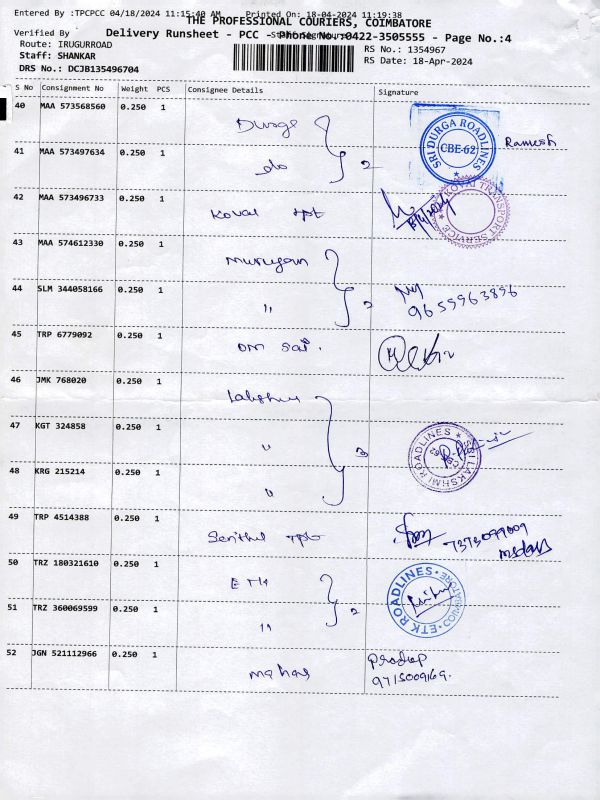 Entered By :TPCPCC 04/18/2024 11:15:40 AM Printed On: 18-04-2024 11:19:38
THE PROFESSIONAL COURIERS, COIMBATORE
Verified By
Delivery Runsheet - PCC - Phone No.:0422-3505555 - Page No.:4
Route: IRUGURROAD
RS No.: 1354967
Staff: SHANKAR
RS Date: 18-Apr-2024
DRS No.: DCJB135496704
S No Consignment No Weight PCS Consignee Details Signature
40 MAA 573568560 0.250 1 Durga
SRI DURGA ROADLINES
CBE-62
Ramesh
41 MAA 573497634 0.250 1 do 2
42 MAA 573496733 0.250 1 Kovai tpt
KOVAI TRANSPORT SERVICE
43 MAA 574612330 0.250 1 Murugan
44 SLM 344058166 0.250 1 " 2
9655963896
45 TRP 6779092 0.250 1 om sai.
46 JMK 768020 0.250 1 Lakshmi
47 KGT 324858 0.250 1 " 3
SRI LAKSHMI ROADLINES
48 KRG 215214 0.250 1 "
49 TRP 4514388 0.250 1 Senthil tpt
50 TRZ 180321610 0.250 1 ETK
ETK ROADLINES
51 TRZ 360069599 0.250 1 " 2
52 JGN 521112966 0.250 1
Pradeep
9715009169.